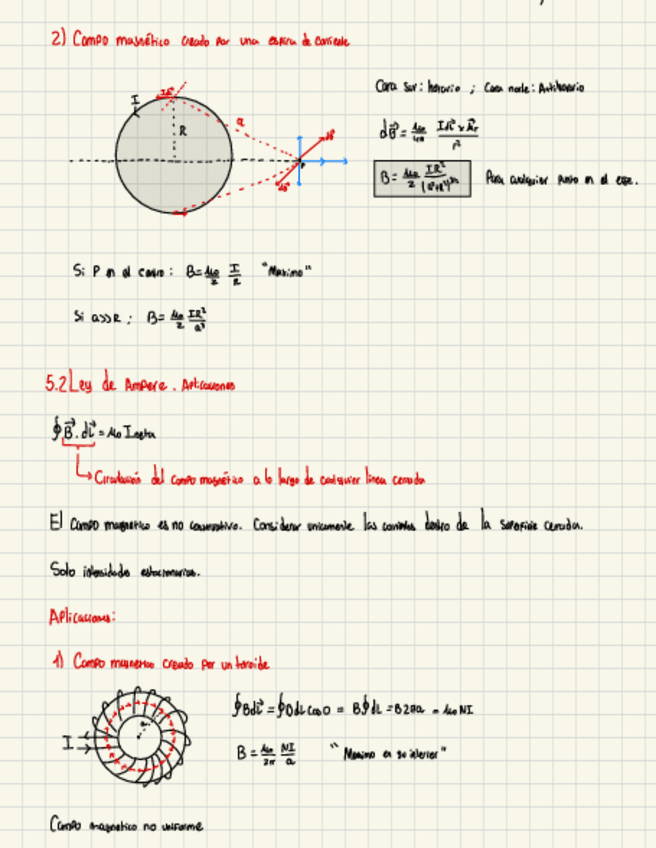 2) Campo magnético creado por una espira de corriente
Cara sur: horario ; Cara norte: Antihorario
I
Idl
R
a
dB
P
dB
dB = μ0/4π Idl x ur / r²
B = μ0/2 IR²/(a²+R²)^3/2 Para cualquier punto en el eje.
Si P en el centro: B = μ0/2 I/R "Maximo"
Si a>>R: B = μ0/2 IR²/a³
5.2 Ley de Ampere. Aplicaciones
∮B.dl = μ0 Ineta
Circulación del campo magnético a lo largo de cualquier línea cerrada
El campo magnetico es no conservativo. Considerar unicamente las corrientes dentro de la superficie cerrada.
Solo intensidades estacionarias.
Aplicaciones:
1) Campo magnetico creado por un toroide
I
a
∮Bdl = ∮Bdl cos0 = B∮dl = B2πa = μ0NI
B = μ0/2π NI/a "Maximo en su interior"
Campo magnetico no uniforme